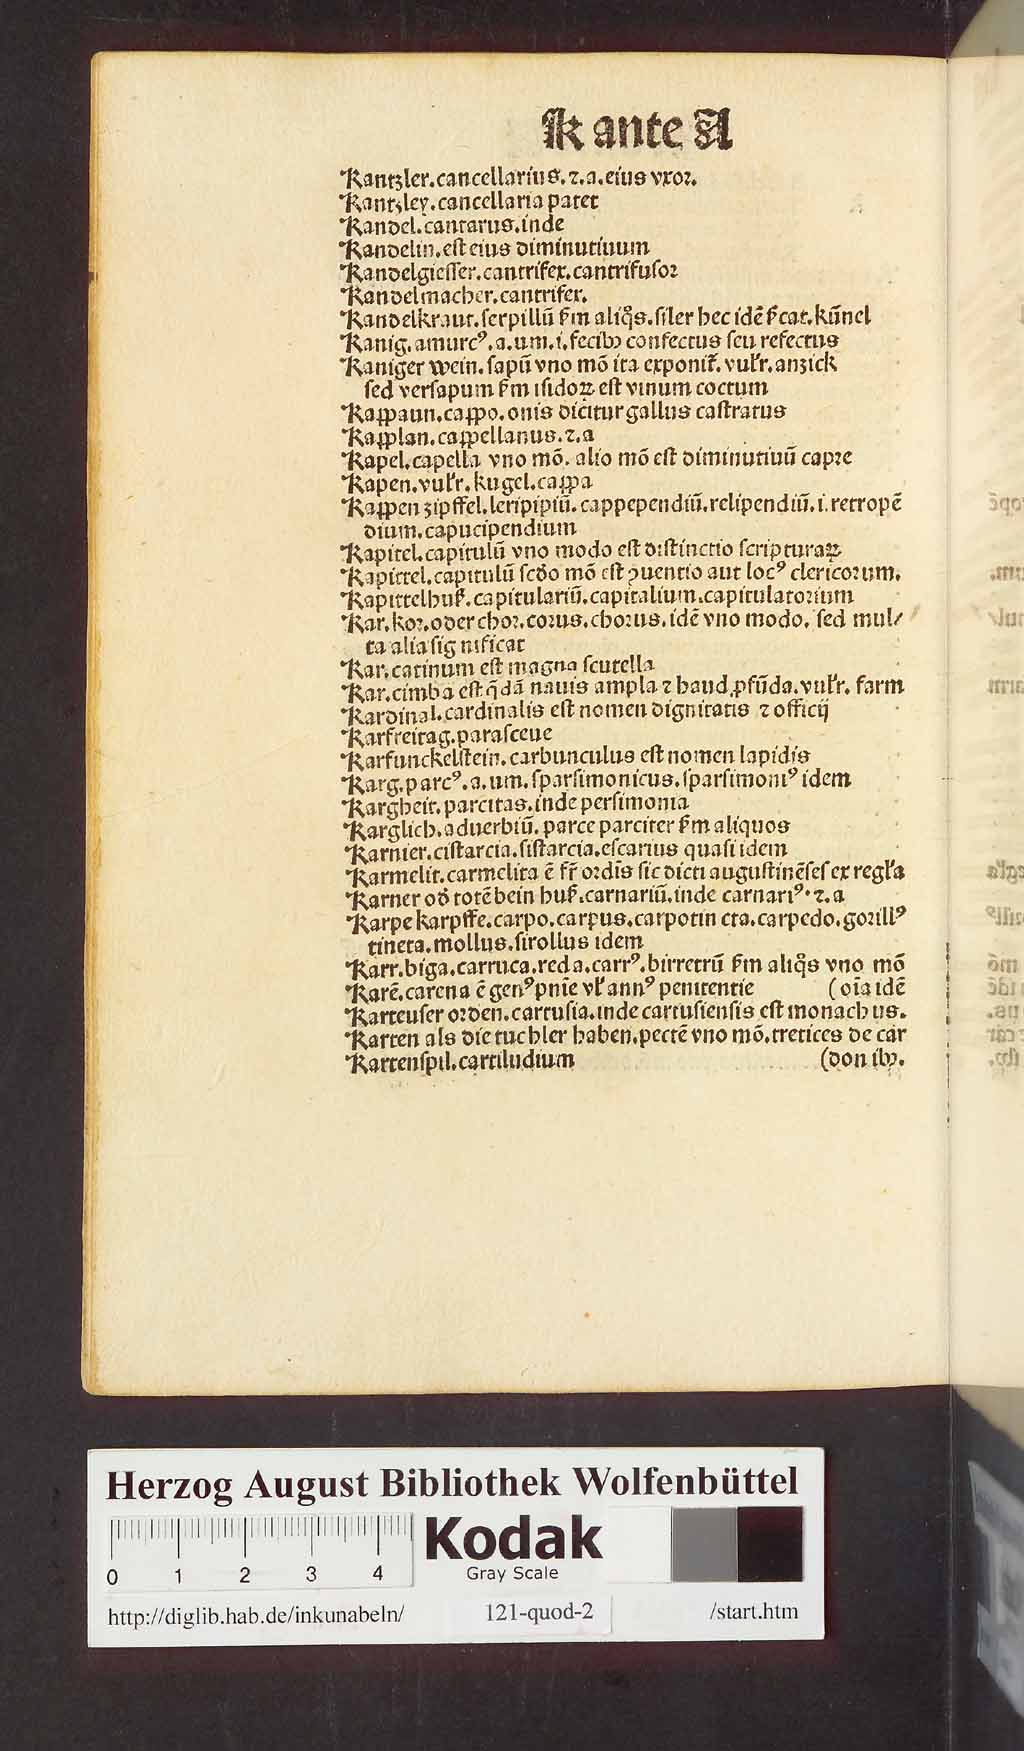 K ante A
Kantzler.cancellarius.⁊.a.eius vxoꝛ.
Kantzley.cancellaria patet
Kandel.cantarus.inde
Kandelin.est eius diminutiuum
Kandelgiesser.cantrifex.cantrifusoꝛ
Kandelmacher.cantrifex.
Kandelkraut.serpillū ẜm aliq̊s.siler hec idē ẜcat.kūnel
Kanig.amurcꝰ.a.um.i.fecibꝫ confectus seu refectus
Kaniger wein.sapū vno mō ita exponit᷑.vulr̄.anzick
sed versapum ẜm isidoꝝ est vinum coctum
Kappaun.cappo.onis dicitur gallus castratus
Kapplan.cappellanus.⁊.a
Kapel.capella vno mō.alio mō est diminutiuū capꝛe
Kapen.vulr̄.kugel.cappa
Kappen zipffel.leripipiū.cappependiū.relipendiū.i.retropē
dium.capucipendium
Kapitel.capitulū vno modo est distinctio scripturaꝝ
Kapittel.capitulū scd̓o mō est ꝯuentio aut locꝰ clericoꝛum.
Kapittelhuß.capitulariū.capitalium.capitulatoꝛium
Kar.koꝛ.oder choꝛ.coꝛus.choꝛus.idē vno modo.sed mul⸗
ta alia sig nificat
Kar.catinum est magna scutella
Kar.cimba est q̄dā nauis ampla ⁊ haud ꝓfūda.vulr̄.farm
Kardinal.cardinalis est nomen dignitatis ⁊ officij
Karfreitag.parasceue
Karfunckelstein.carbunculus est nomen lapidis
Karg.parcꝰ.a.um.sparsimonicus.sparsimoniꝰ idem
Kargheit.parcitas.inde persimonia
Karglich.aduerbiū.parce parciter ẜm aliquos
Karnier.cistarcia.sistarcia.escarius quasi idem
Karmelit.carmelita ē fr̄ oꝛdīs sic dicti augustinēses ex regl̄a
Karner od̓ totēbein huß.carnariū.inde carnariꝰ.⁊.a
Karpe karpffe.carpo.carpus.carpotin cta.carpedo.goꝛillꝰ
tineta.mollus.sirollus idem
Karr.biga.carruca.reda.carrꝰ.birretrū ẜm aliq̊s vno mō
Karē.carena ē genꝰ pnie vl̄ annꝰ penitentie (oīa idē
Karteuser oꝛden.cartusia.inde cartusiensis est monach us.
Karten als die tuchler haben.pectē vno mō.tretices de car
Kartenspil.cartiludium (don ibꝫ.
Herzog August Bibliothek Wolfenbüttel
0 1 2 3 4
Kodak
Gray Scale
http://diglib.hab.de/inkunabeln/ 121-quod-2 /start.htm